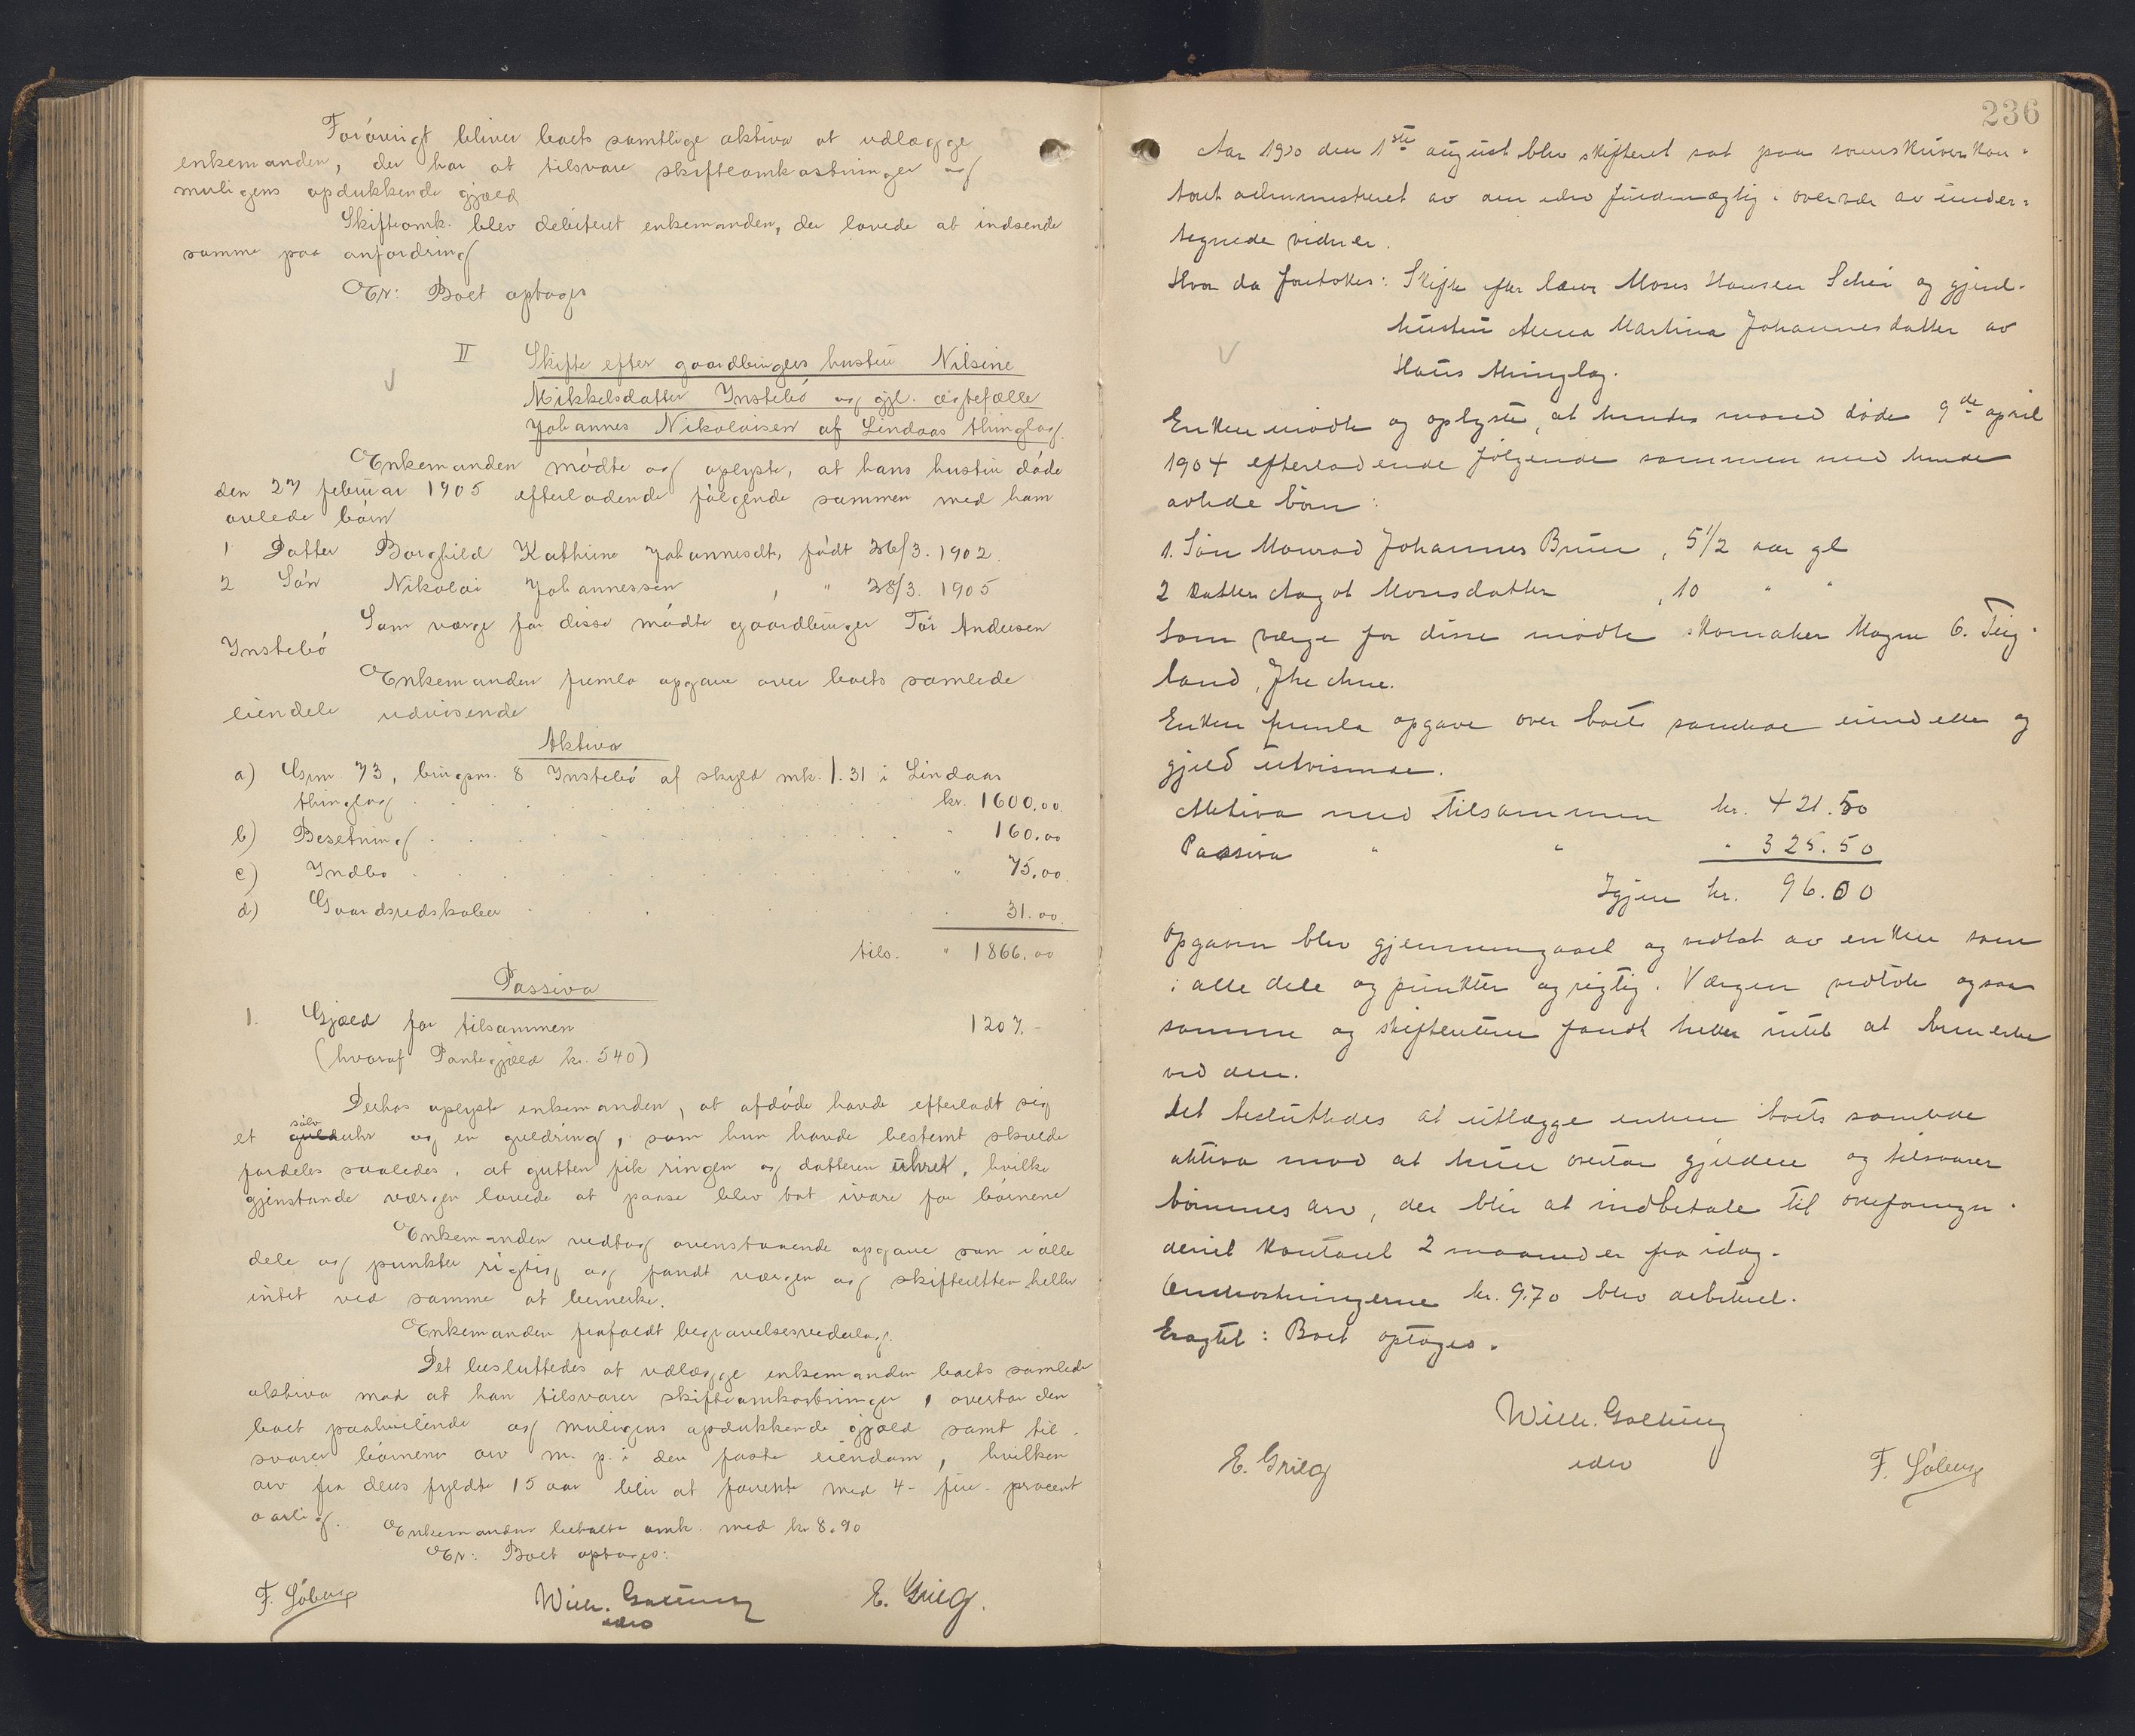 Forøvrigt bliver boets samtlige aktiva at udlægge
enkemanden, der har at tilsvare skifteomkostninger og
muligens opdukkende gjæld
Skifteomk. blev debiteret enkemanden, der lovede at indsende
samme paa anfordring
Er: Boet optages
II Skifte efter gaardbrugers hustru Nilsine
Mikkelsdatter Instebø og gjl. ægtefælle
Johannes Nikolaisen af Lindaas thinglag.
Enkemanden mødte og oplyste, at hans hustru døde
den 27 februar 1905 efterladende følgende sammen med ham
avlede børn
1 Datter Borghild Kathrine Johannesdt, født 26/3. 1902.
2 Søn Nikolai Johannessen , " 28/3. 1905
Som værge for disse mødte gaardbruger Tør Andersen
Instebø
Enkemanden fremla opgave over boets samlede
eiendele udvisende
Aktiva
a) Grn. 73, brugsn. 8 Instebø af skyld mk. 1.31 i Lindaas
thinglag kr. 1600.00.
b) Besetning " 160.00
c) Indbo " 75.00.
d) Gaardsredskaber " 31.00.
tils. " 1866.00
Passiva
1. Gjæld for tilsammen 1207.-
(hvoraf Pantegjæld kr. 540)
Derhos oplyste enkemanden, at afdøde havde efterladt sig
sølv
et guldeuhr og en guldring, som hun havde bestemt skulde
fordeles saaledes, at gutten fik ringen og datteren uhret, hvilke
gjenstande værgen lovede at paase blev tat ivare for børnene
Enkemanden vedtog ovenstaaende opgave som i alle
dele og punkter rigtig og fandt værgen og skifteretten heller
intet ved samme at bemerke.
Enkemanden frafaldt begravelsesvederlag.
Det besluttedes at udlægge enkemanden boets samlede
aktiva mod at han tilsvarer skifteomkostninger, overtar den
boet paahvilende og muligens opdukkende gjæld samt til-
svarer børnenes arv m. p. i den faste eiendom, hvilken
arv fra deres fyldte 15 aar blir at forrente med 4 - fire - procent
aarlig.
Enkemanden betalte omk. med kr 8.90
Er: Boet optages:
F. Søberg Wilh. Gollung E. Grieg.
edsv
236
Aar 1910 den 1ste august blev skifteret sat paa sorenskriverkon-
toret administreret av den edsv fuldmægtig i overvær av under-
tegnede vidner.
Hvor da foretokes: Skifte efter lærer Moses Hansen Schei og gjenl.
hustru Anna Martina Johannesdatter av
Haus thinglag.
Enken mødte og oplyste, at hendes mand døde 9de april
1904 efterladende følgende sammen med hende
avlede børn:
1. Søn Monrad Johannes Bruu, 5 1/2 aar gl
2 Datter Aagot Mosesdatter , 10 " "
Som værge for disse mødte skomaker Magne O. Teig-
land, Ytre Arne.
Enken fremla opgave over boets samlede eiendele og
gjeld utvisende.
Aktiva med tilsammen kr. 421.50
Passiva " " " 325.50
Igjen kr. 96.00
Opgaven blev gjennemgaaet og vedtat av enken som
i alle dele og punkter rigtig. Værgen vedtok ogsaa
samme og skifteretten fandt heller intet at bemerke
ved den.
Det besluttedes at utlægge enken boets samlede
aktiva mod at hun overtar gjelden og tilsvarer
børnenes arv, der blir at indbetale til overformyn-
deriet kontoret 2 maaneder fra idag.
Omkostningerne kr. 9.70 blev debiteret.
Eragtet: Boet optages.
Wilh. Gollung
E. Grieg edsv F. Søberg